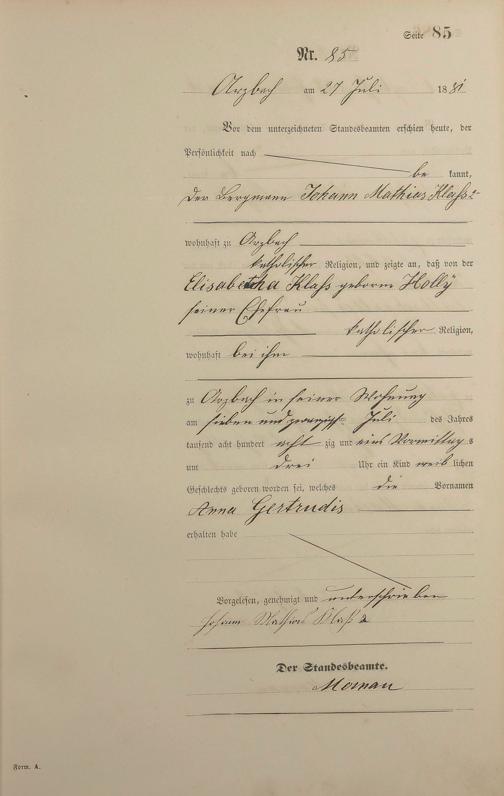 Seite 85
Nr. 85
Arzbach am 27 Juli 1881
Vor dem unterzeichneten Standesbeamten erschien heute, der
Persönlichkeit nach
be kannt,
der Bergmann Johann Mathias Klaß 2
wohnhaft zu Arzbach
katholischer Religion, und zeigte an, daß von der
Elisabetha Klaß geborne Holly
seiner Ehefrau
katholischer Religion,
wohnhaft bei ihm
zu Arzbach in seiner Wohnung
am sieben und zwanzigst Juli des Jahres
tausend acht hundert acht zig und eins Vormittags
um drei Uhr ein Kind weib lichen
Geschlechts geboren worden sei, welches die Vornamen
Anna Gertrudis
erhalten habe
Vorgelesen, genehmigt und unterschrieben
Johann Mathias Klaß 2
Der Standesbeamte.
Form. A.